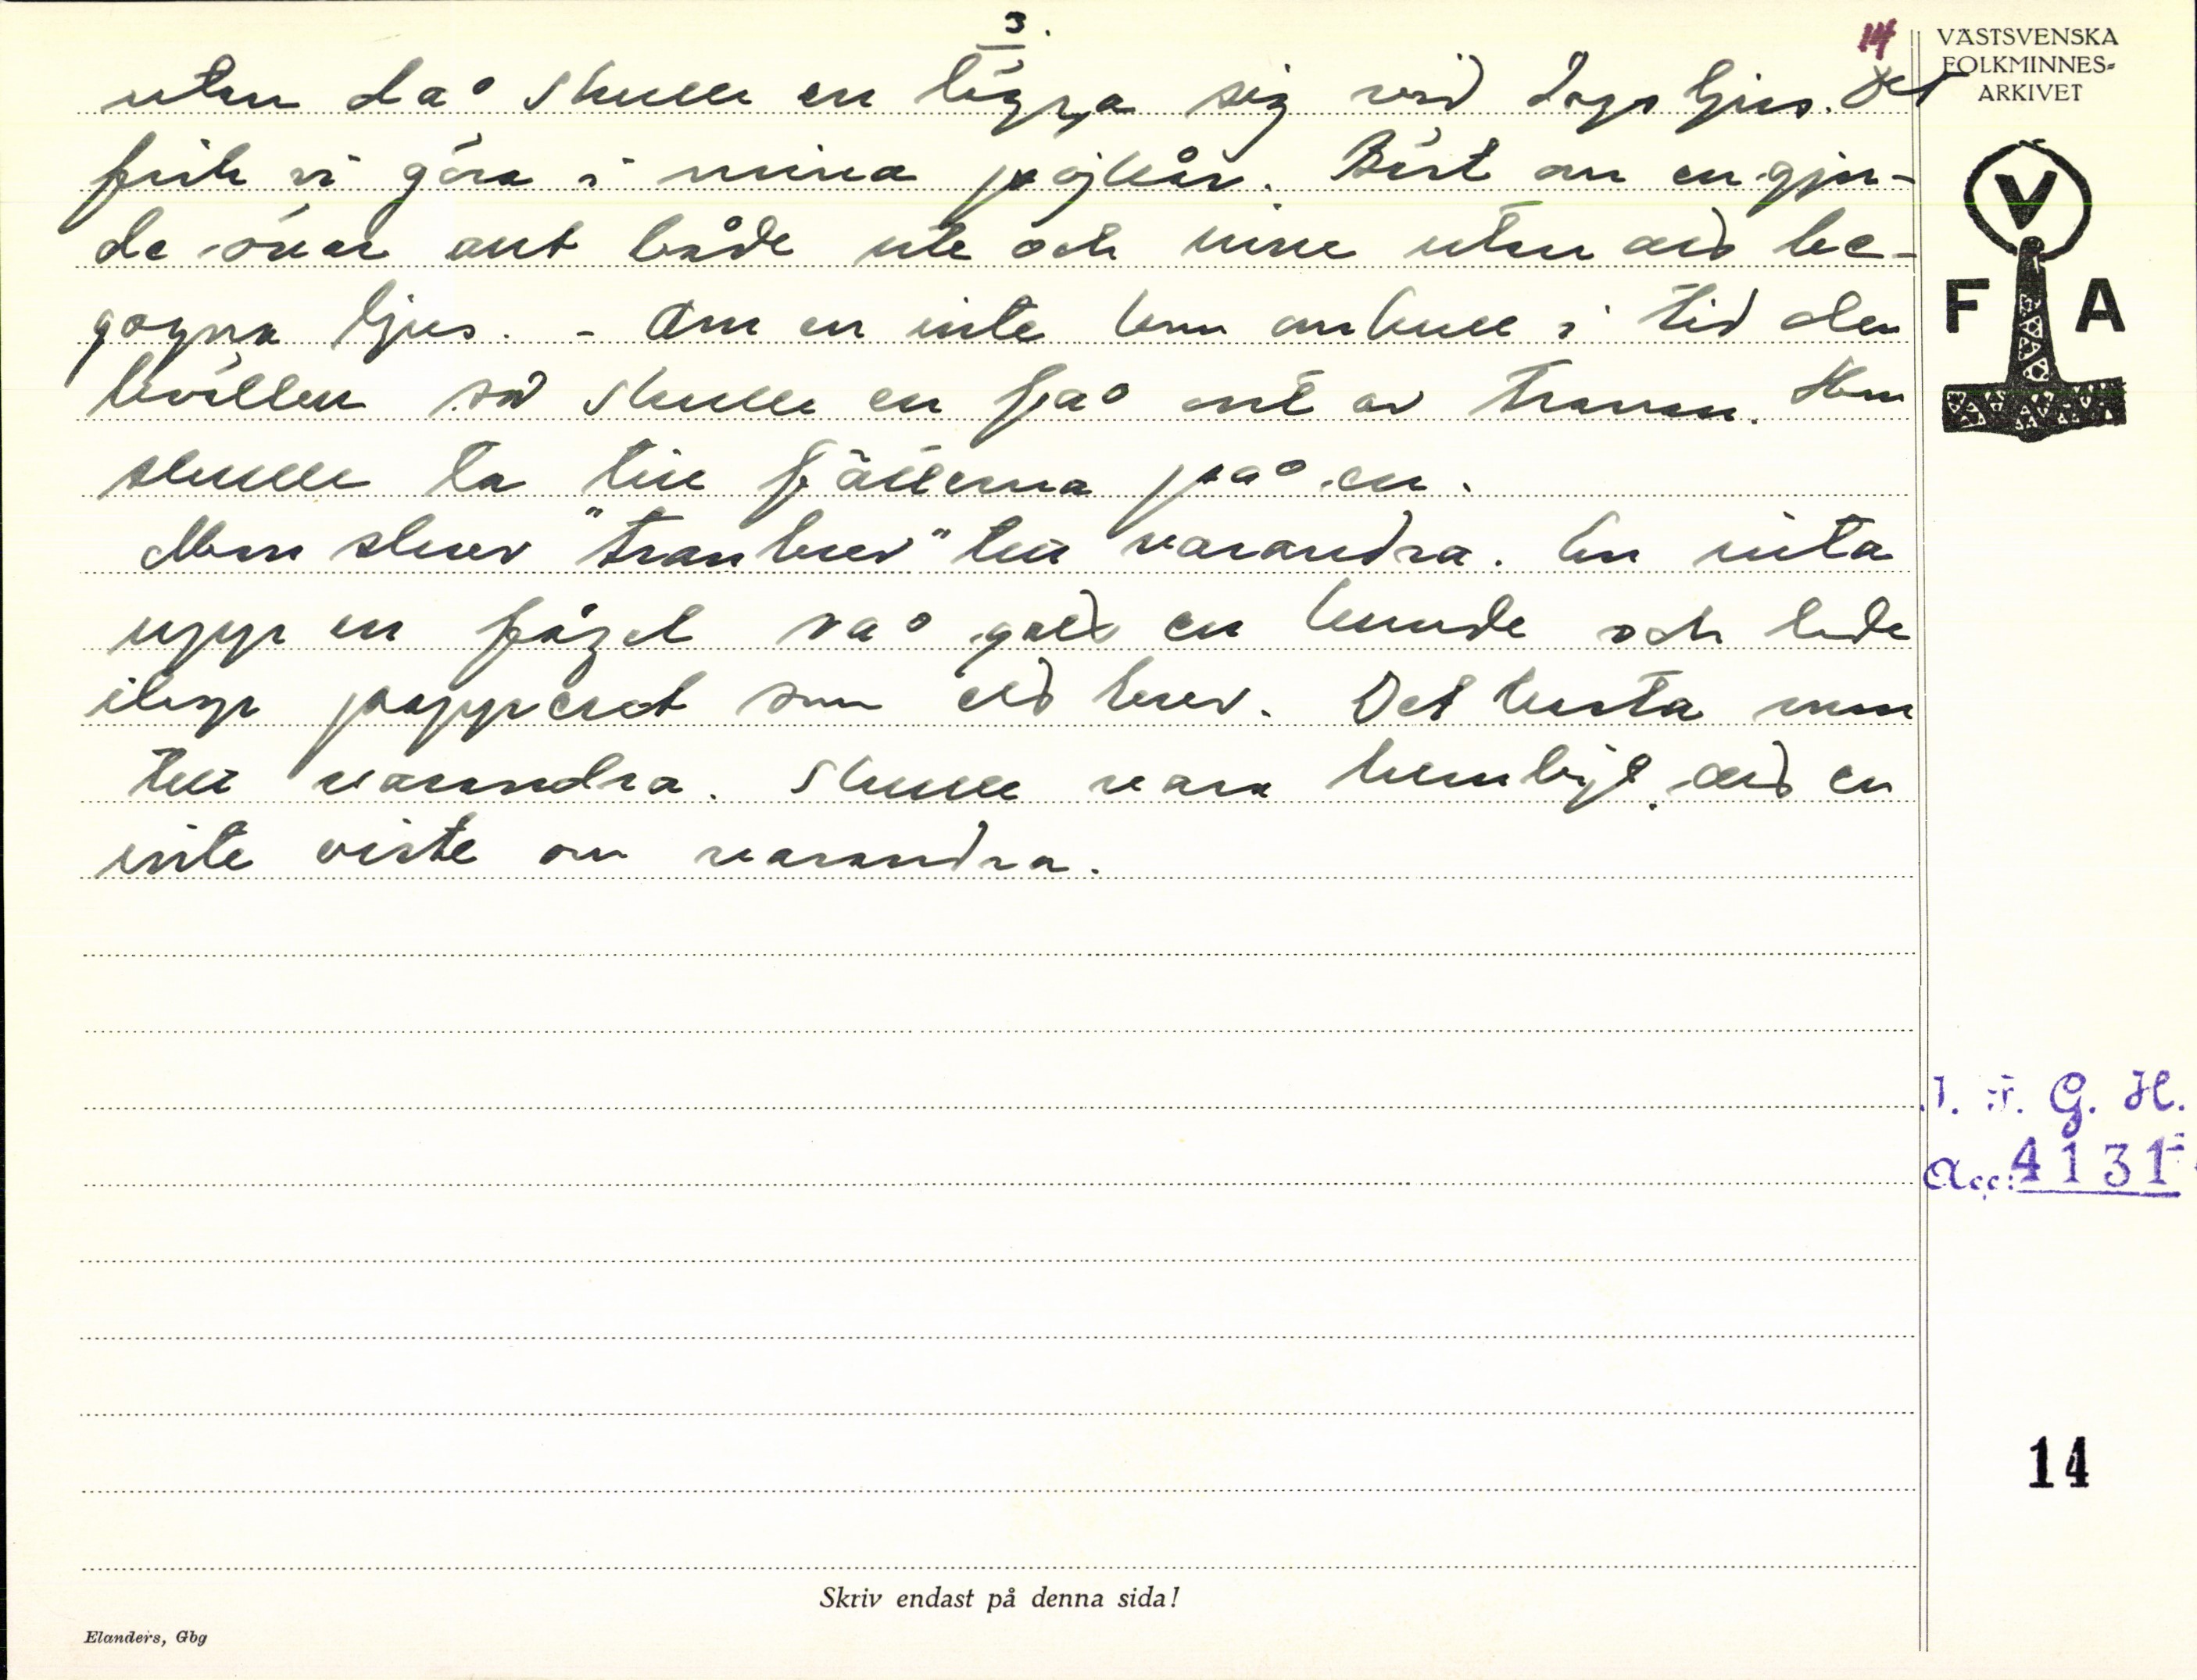 3.
14
utan då skulle en lägga sig vid dagsljus. Det
fick vi göra i mina pojkår. Bäst om en gjor-
de över allt både ute och inne utan att be-
gagna ljus. - Om en inte kom omkull i tid den
kvällen så skulle en få ont av tranan. Hon
skulle ta till fjällerna på en.
Man skrev "tranbrev" till varandra. En rita
upp en fågel så gott en kunde och lade
ihop papperet som ett brev. Det kasta man
till varandra. Skulle vara hemligt, att en
inte viste om varandra.
VÄSTSVENSKA
FOLKMINNES-
ARKIVET
V
F A
I. F. G. H.
Acc: 4131
14
Skriv endast på denna sida!
Elanders, Gbg